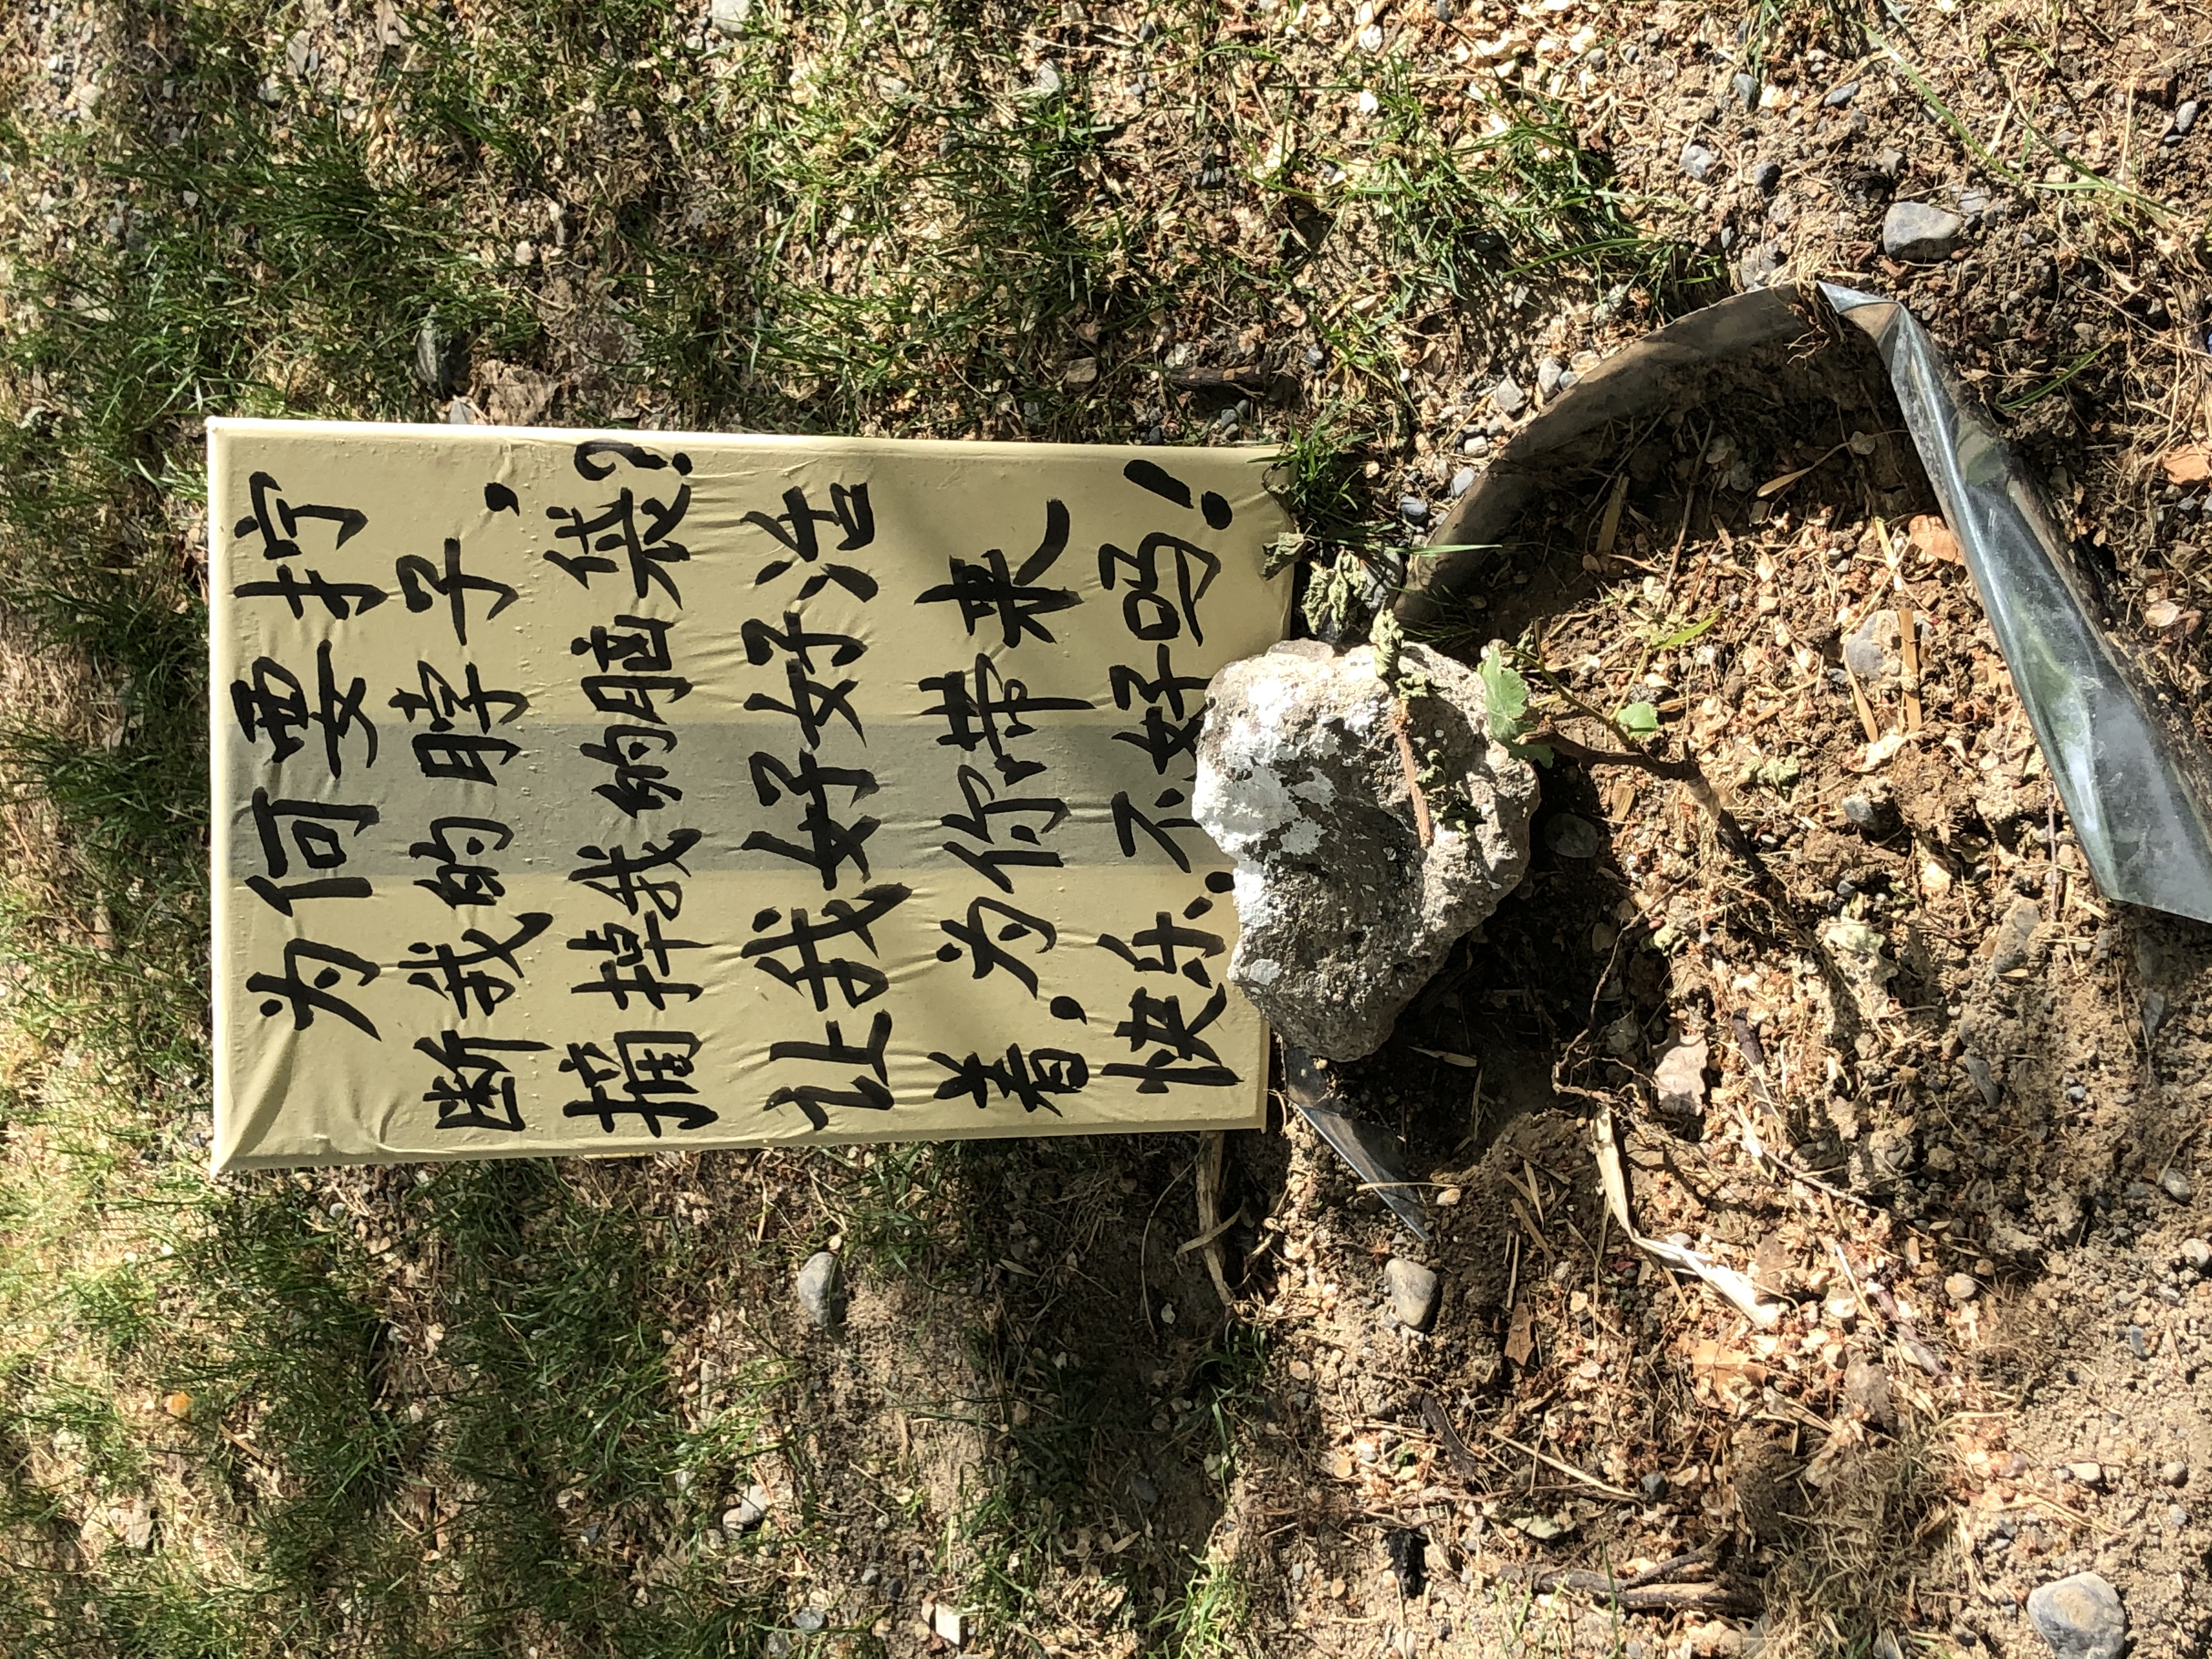 为何要拧
断我的脖子，
摘掉我的脑袋？
让我好好好活
着，为你带来
快乐，不好吗！